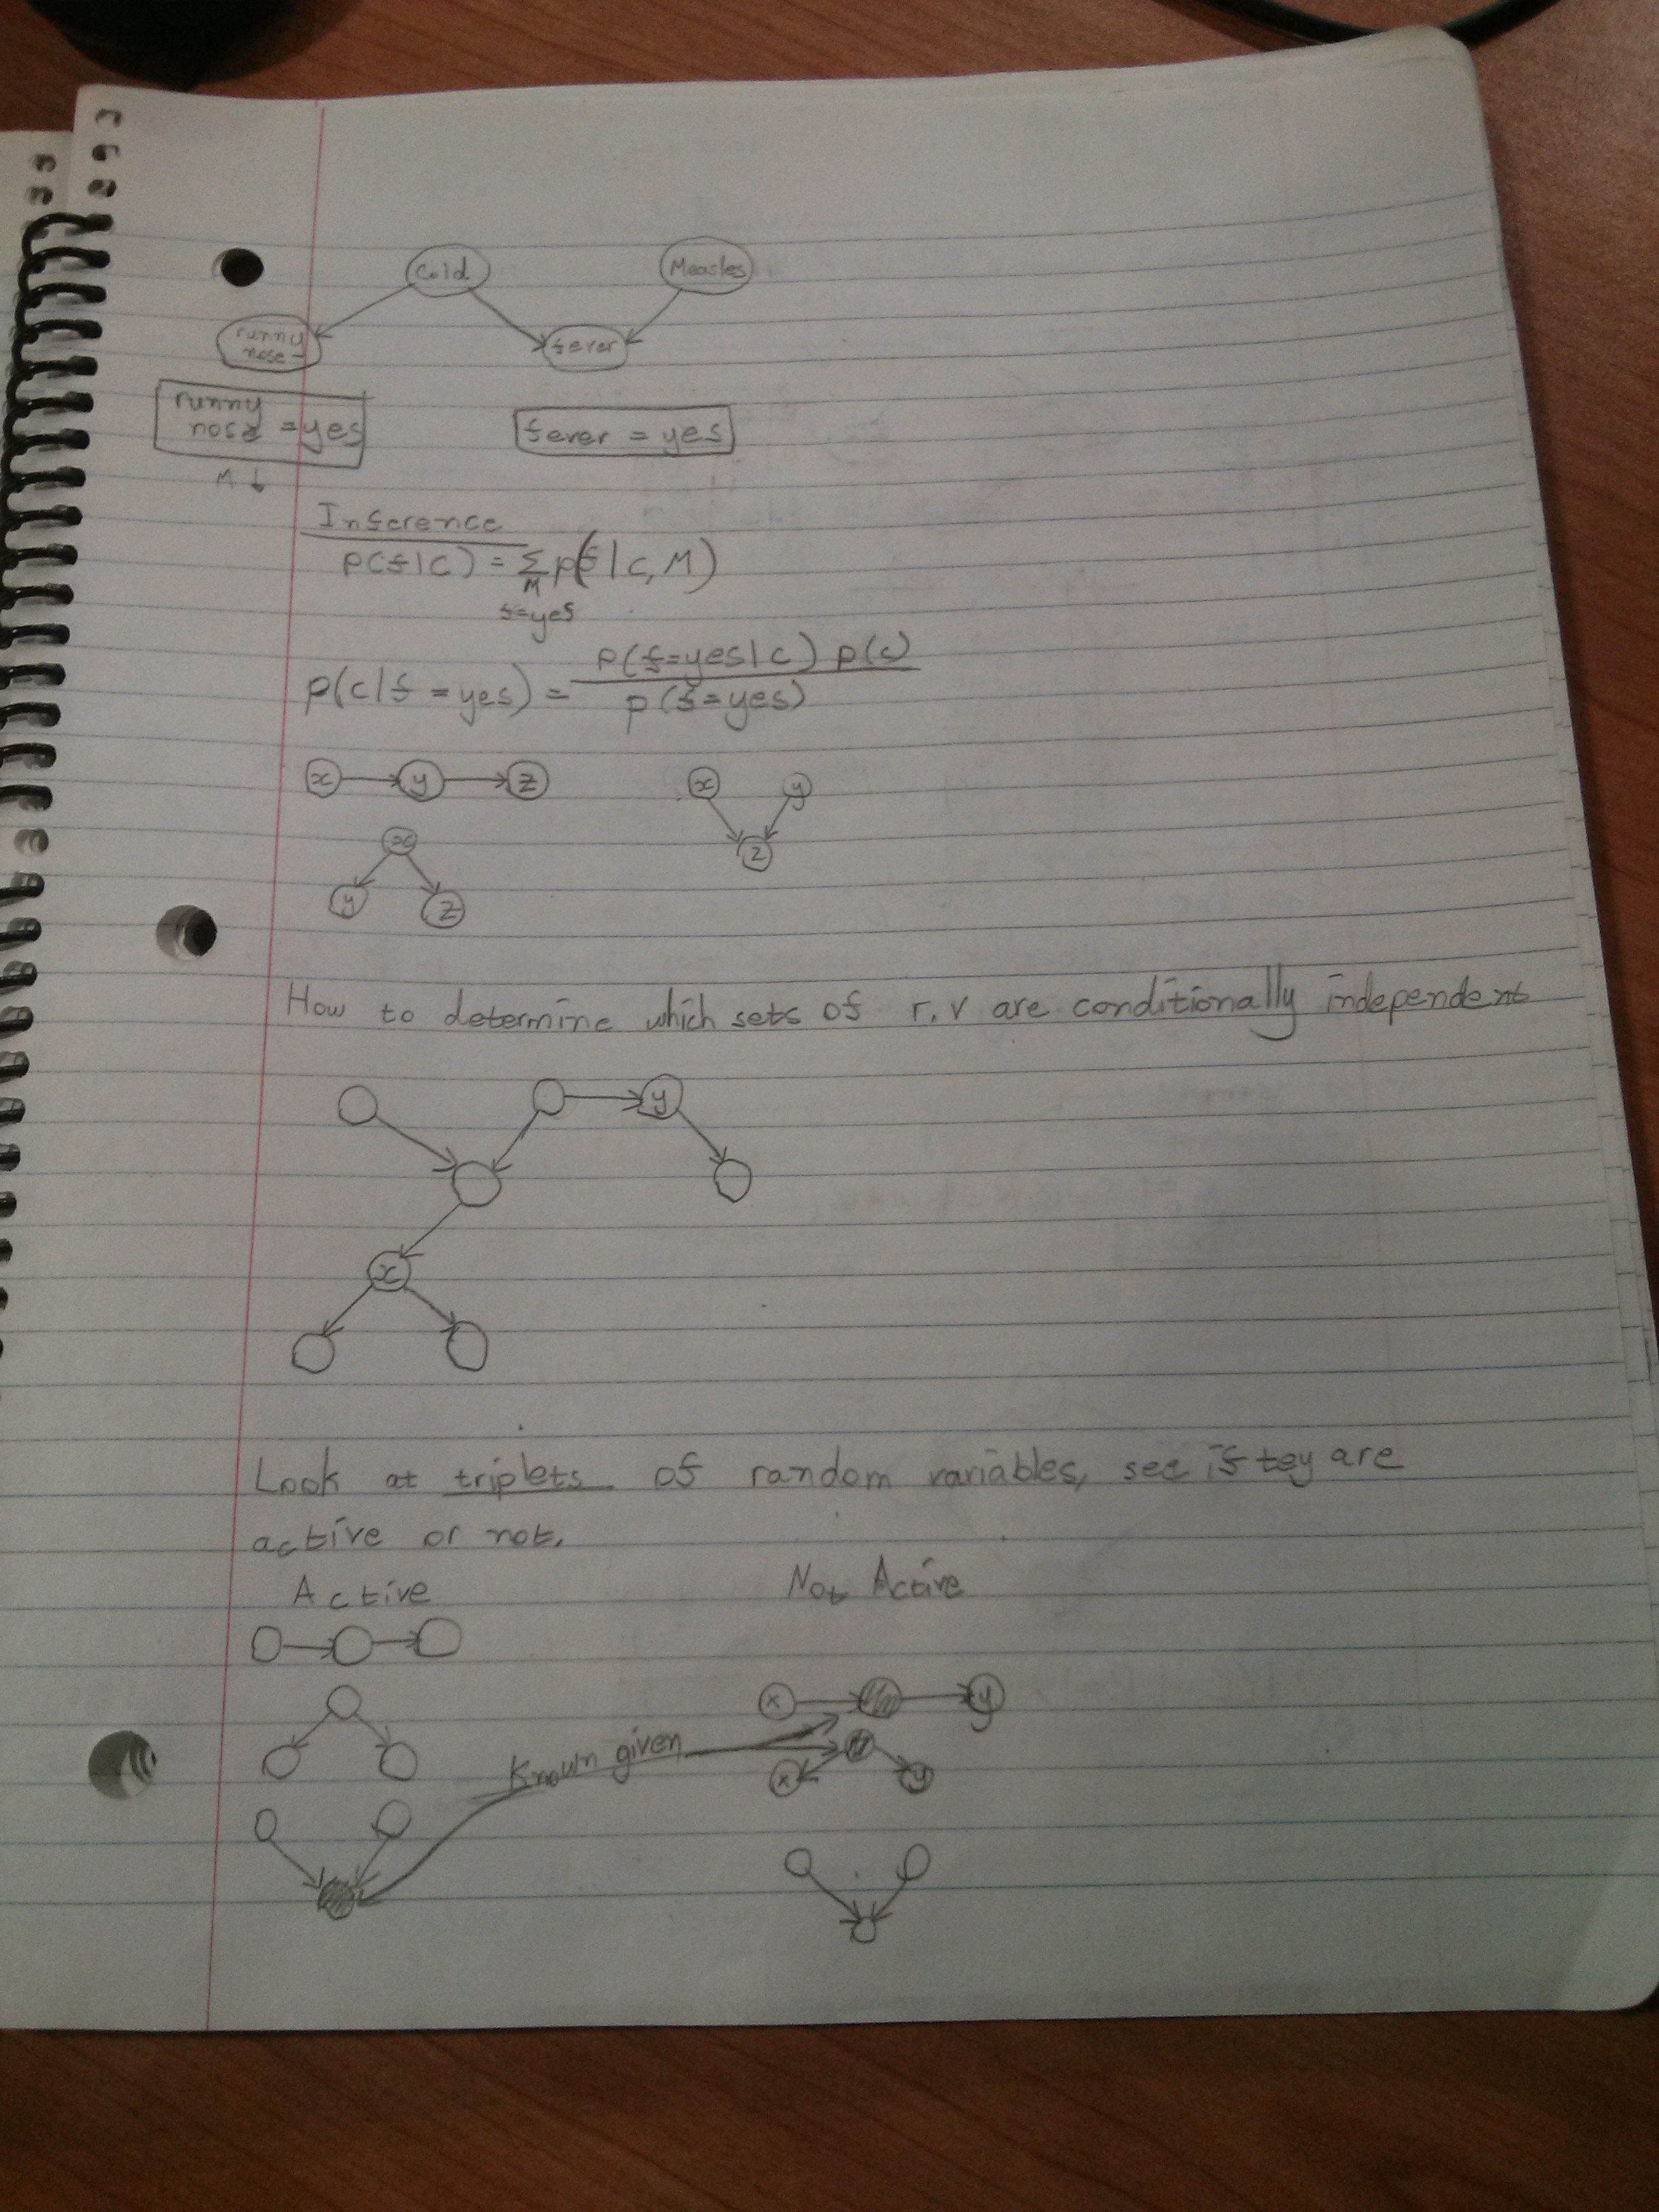 Cold Measles
runny
nose
fever
runny
nose = yes
fever = yes
M ↓
Inference
P(f|C) = Σ p(f|C, M)
M
f=yes
P(f=yes|C) p(c)
p(c|f = yes) =
p(f=yes)
x y z
x y
z
x
y z
How to determine which sets of r.v are conditionally independent
y
x
Look at triplets of random variables, see if tey are
active or not.
Active Not Active
x y
Known given
x y